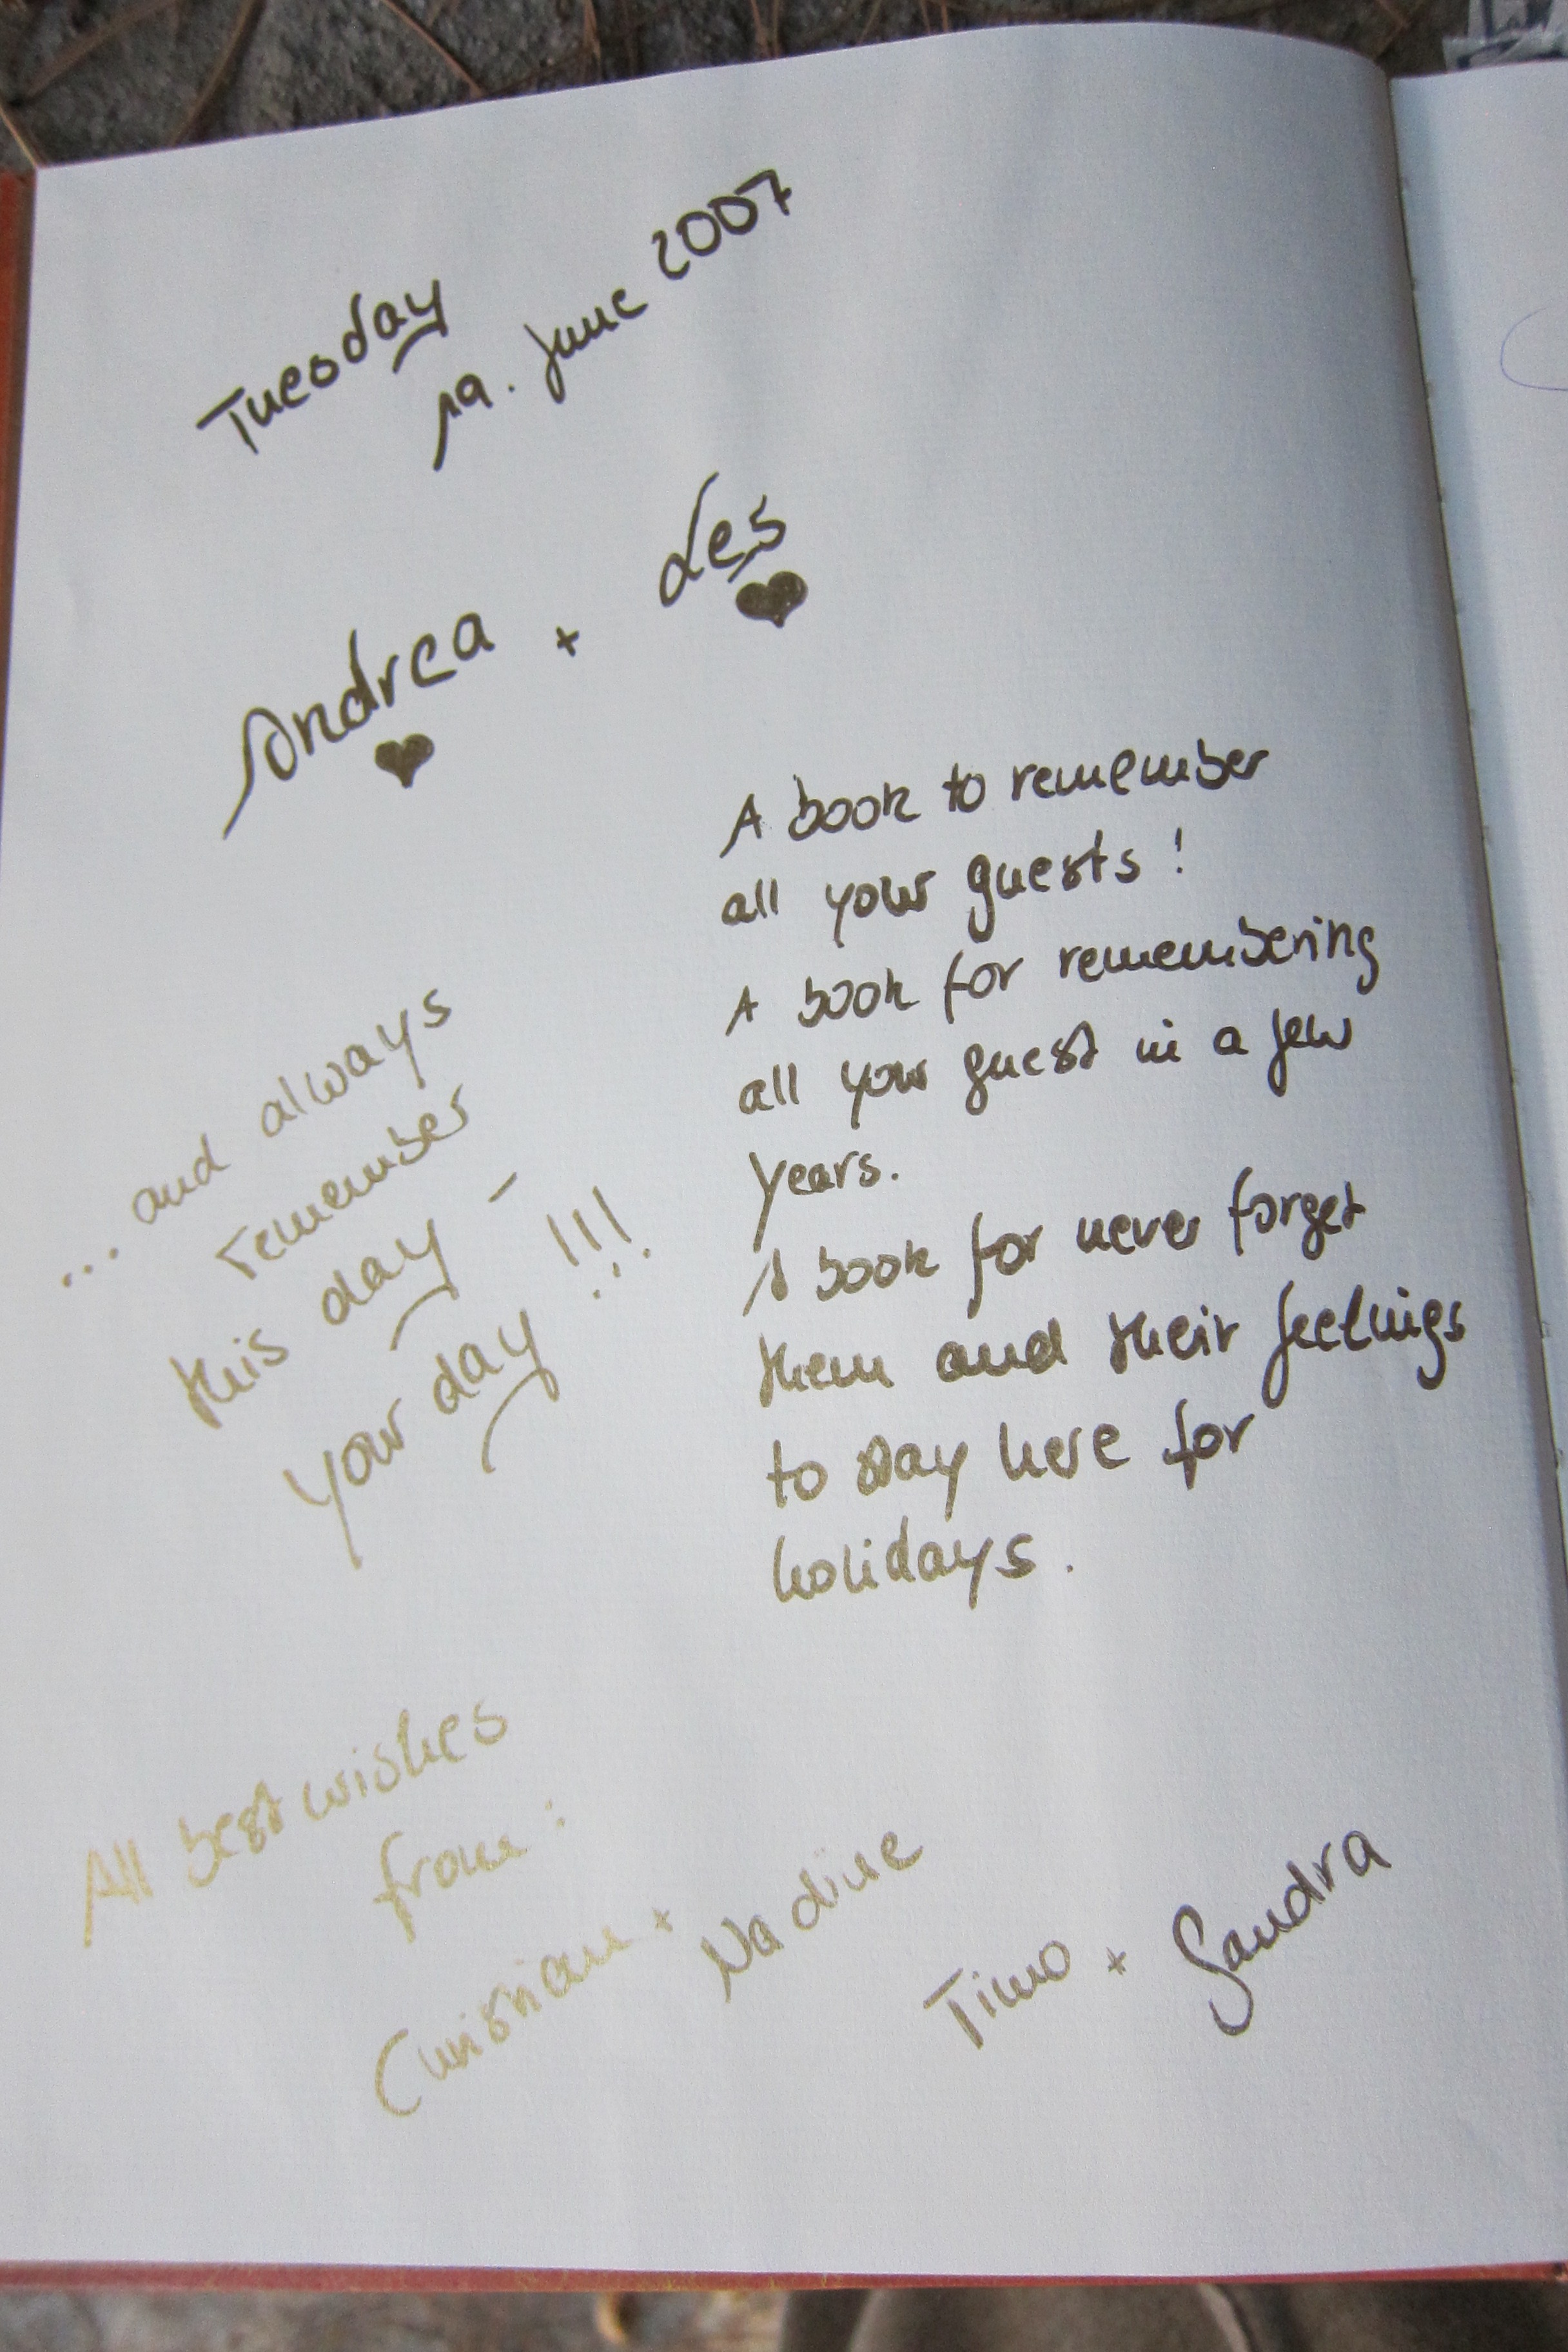 Tuesday
19. June 2007
Andrea + Les
A book to remember
all your guests!
A book for remembering
all your guest in a few
years.
A book for never forget
them and their feelings
to stay here for
holidays.
... and always
remember
this day -
your day !!!
All best wishes
from:
Christian + Nadine
Timo + Sandra